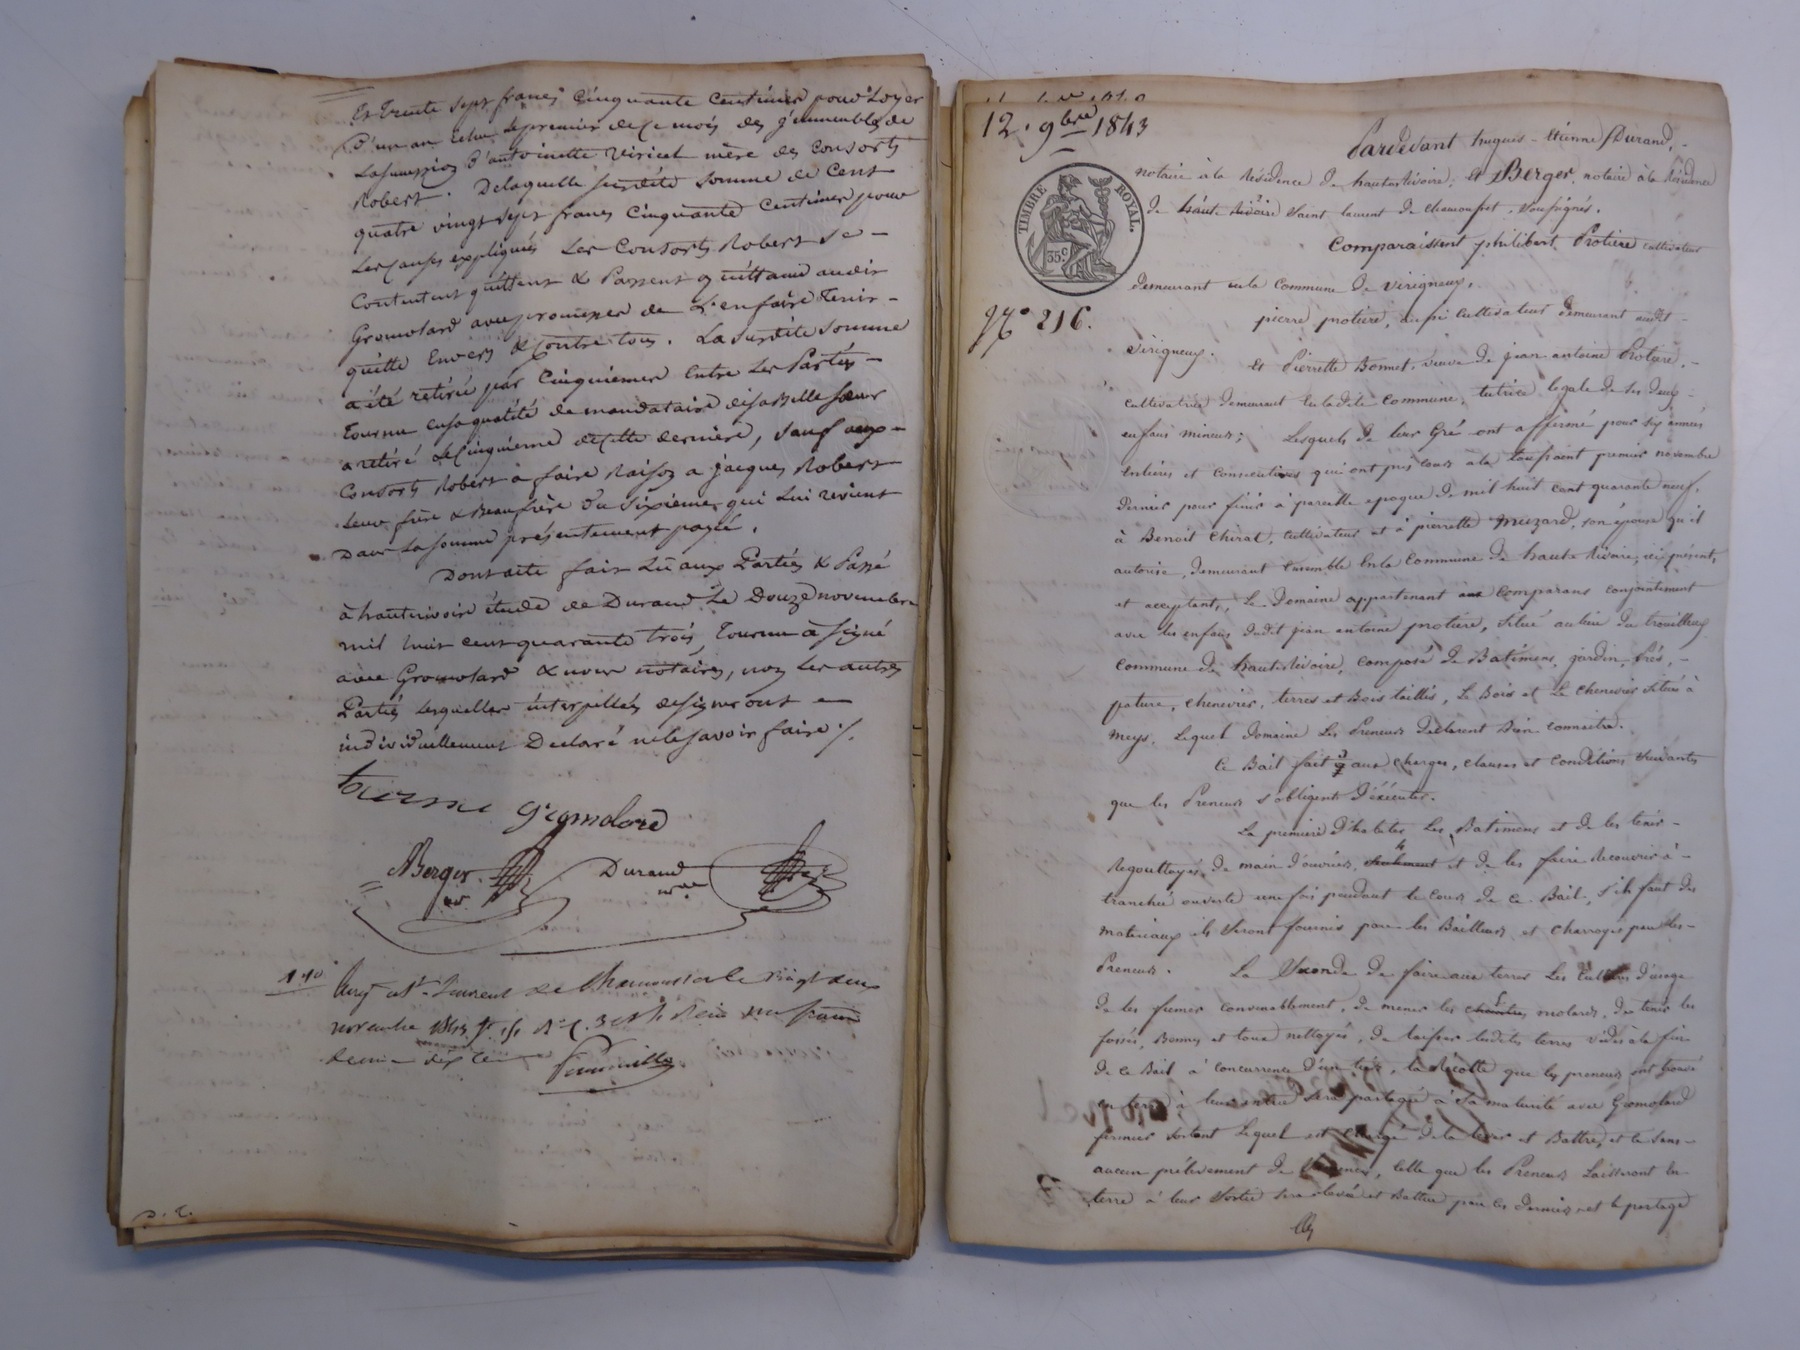 Et trente sept francs cinquante centimes pour Loyer
D'un an échu le premier de ce mois des immeubles de
La succession d'antoinette Viricel mère des consorts
Robert. De laquelle susdite somme de Cent
quatre vingt sept francs cinquante centimes pour
Les causes expliquées Les Consorts Robert se
Contentent quittent & Passent quittance audit
Gromolard avec promesse de L'en faire tenir
quitte Envers & Contre tous. La susdite somme
a été retirée par Cinquiemes entre Les Parties
tournu en sa qualité de mandataire de sa Belle soeur
a retiré Le Cinquieme de cette derniere, sauf aux
Consorts Robert a faire Raison a jacques Robert
Leur frère & Beaufrère du sixieme qui Lui revient
Dans La somme présentement payée.
Dont acte fait Lu aux Parties & Passé
à hauterivoire étude de Durand Le Douze novembre
mil huit cent quarante trois, tournu à signé
avec Gromolard & nous notaires, non Les autres
Parties Lesquelles interpellées de signer ont
individuellement Declaré ne le savoir faire ./.
Gromolard
Berger Durand
nre
Enrg à St Laurent de Chamousset le vingt deux
novembre 1843 f° Reçu un franc
décime dix c
12. 9bre 1843
TIMBRE ROYAL
35c
N° 216.
Pardevant hugues-Etienne Durand,
notaire à la Résidence de hauterivoire, et Berger, notaire à la Résidence
de haute Rivoire Saint laurent de chamousset, soussignés.
Comparaissent philibert Protiere cultivateur
demeurant en la commune de Virigneux,
pierre protiere, aussi cultivateur demeurant audit
Virigneux.
et Pierrette Bonnet, veuve de jean antoine Protiere,
cultivatrice demeurant en ladite commune, tutrice legale de ses deux
enfans mineurs; Lesquels de leur Gré ont affermé pour six années
entieres et consecutives qui ont pris cours à la toussaint premier novembre
dernier pour finir à pareille epoque de mil huit cent quarante neuf,
à Benoit Chirat, cultivateur et à pierrette Muzard, son épouse qu'il
autorise, demeurant ensemble en la Commune de haute Rivoire, ici présents
et acceptant, Le Domaine appartenant aux comparans conjointement
avec les enfans dudit jean antoine protiere, situé au lieu du trouilleux
Commune de hauterivoire, composé de Batimens, jardin, Prés,
pature, cheneviere, terres et Bois taillis, Le Bois et Le cheneviere situés à
Meys. Lequel Domaine Les Preneurs Declarent Bien connaitre.
Ce Bail fait aux charges, clauses et conditions suivantes
que les Preneurs s'obligent d'éxécuter.
La premiere d'habiter Les Batimens et de les tenir
Regouttoyés de main d'ouvrier, et de les faire Recouvrir à
tranchée ouverte une fois pendant le cours de ce Bail, s'il faut des
materiaux ils seront fournis par les Bailleurs et charroyés par les
Preneurs. La Seconde de faire aux terres Les cultures d'usage
de les fumer convenablement, de mener les molards, de tenir les
fossés, Bennes et tous nettoyés, de laisser lesdites terres vides à la fin
de ce Bail à concurrence d'un tiers, la Récolte que les preneurs ont trouvé
en terre à leur entrée sera partagée à sa maturité avec Gromolard
fermier sortant Lequel est chargé de la lever et Battre, et ce sans
aucun prélèvement de semence, celle que les Preneurs Laisseront en
terre à leur Sortie sera levée et Battue par ce dernier et le partage